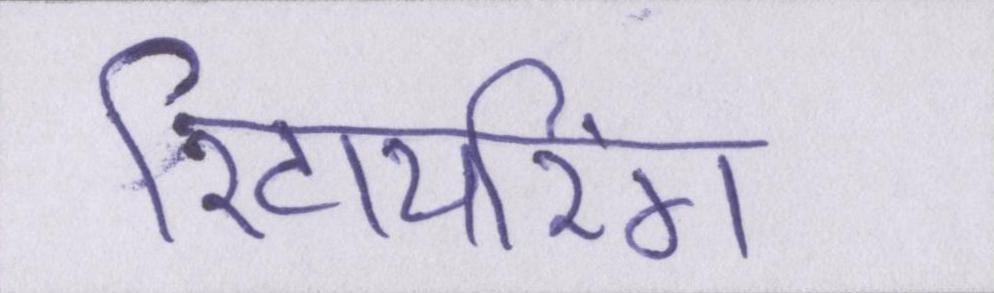 रिटायरिंग